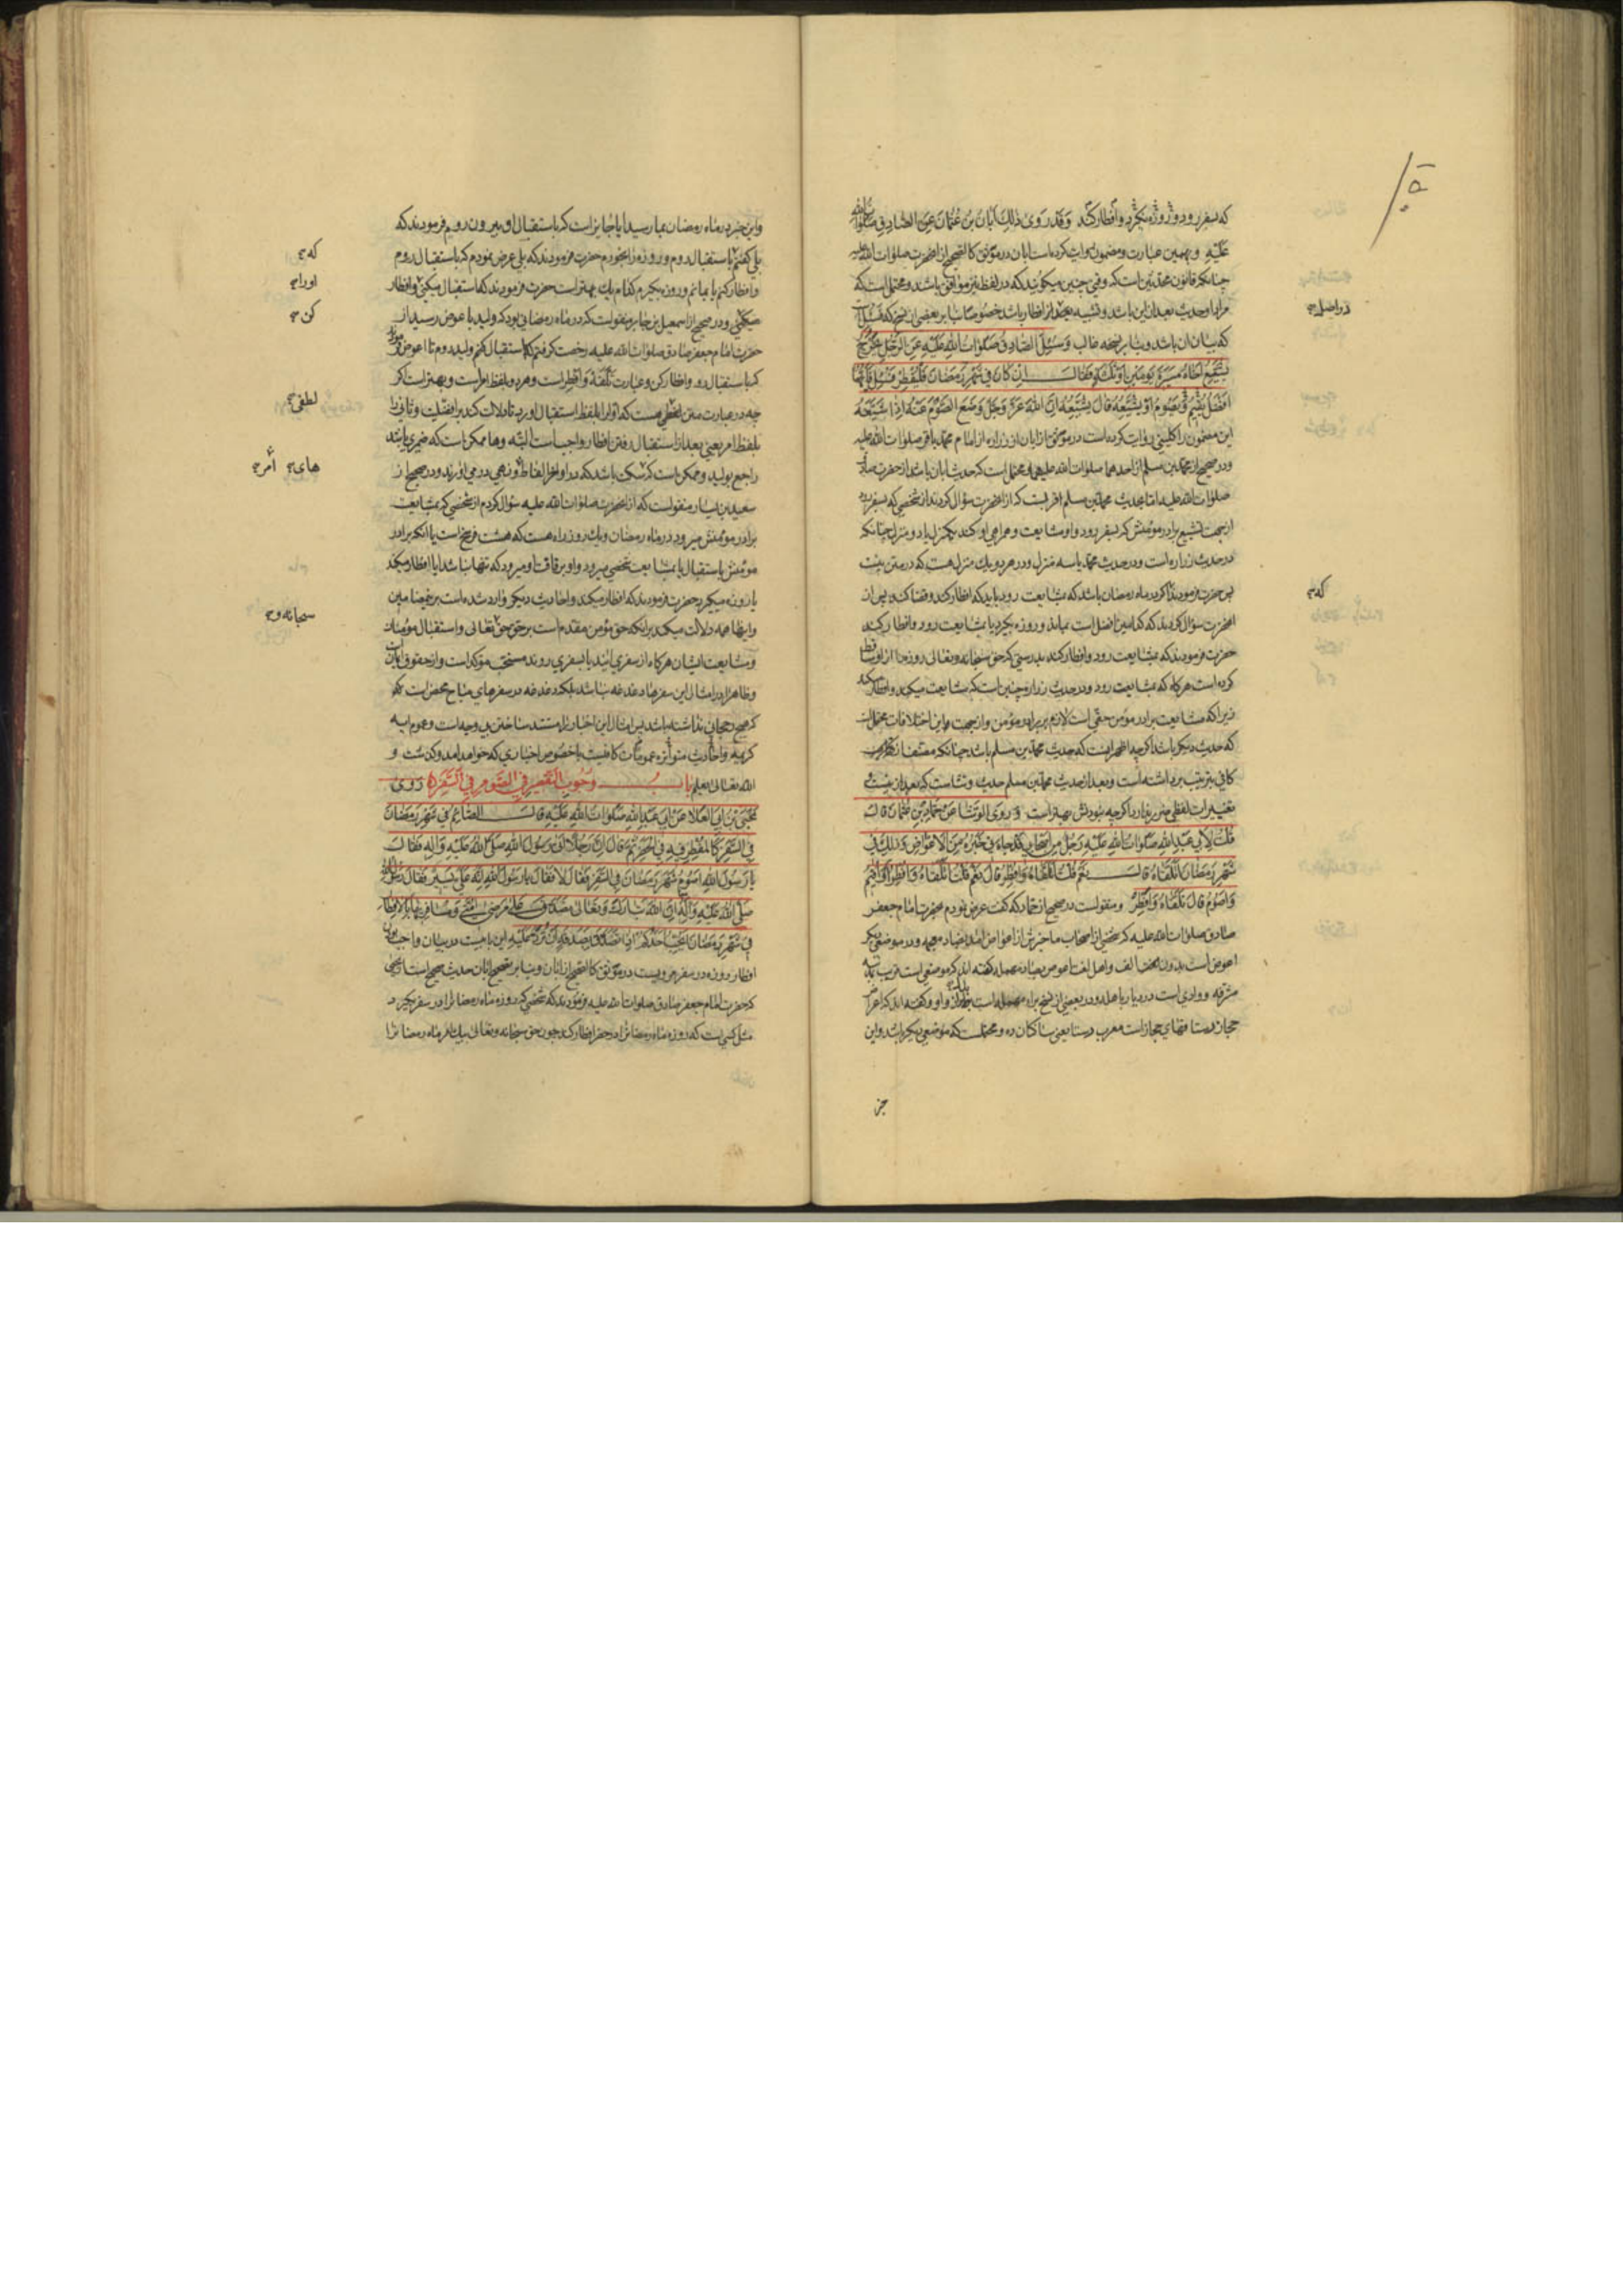 که بسفر رود و روزه نکیرد و افطار کند وَقَدْ رَوىٰ ذٰلِكَ اَبَانُ بْنُ عُثْمَانَ عَنِ الصَّادِقِ صَلَوَاتُ اللّٰهِ
عَلَيْهِ و بهمین عبارت و مضمون روایت کرده است ابان در موثق کالصحیح از انحضرت صلوات الله علیه
چنانکه قانون محدثین است که وقتی چنین میکویند که در لفظ نیز موافق باشد و محتملست که
مراد او حدیث بعد ازین باشد و تشبیه بعضی از افطار باشد خصوصا بنا بر بعضی از نسخ که
که بیان ان باشد و بنا بر نسخه غالب وَسُئِلَ الصَّادِقُ صَلَوَاتُ اللّٰهِ عَلَيْهِ عَنِ الرَّجُلِ يَخْرُجُ
يُشَيِّعُ اَخَاهُ مَسِيرَةَ يَوْمَيْنِ اَوْ ثَلٰثَةٍ فَقَالَ اِنْ كَانَ فِي شَهْرِ رَمَضَانَ فَلْيُفْطِرْ فَسُئِلَ فَاَيُّهُمَا
اَفْضَلُ يُقِيمُ وَيَصُومُ اَوْ يُشَيِّعُهُ قَالَ يُشَيِّعُهُ اِنَّ اللّٰهَ عَزَّ وَجَلَّ وَضَعَ الصَّوْمَ عَنْهُ اِذَا شَيَّعَهُ
این مضمون را کلینی روایت کرده است در موثق از ابان از زراره از امام محمد باقر صلوات الله علیه
و در صحیح از محمد بن مسلم از احدهما صلوات الله علیهما و محتمل است که حدیث ابان باشد از حضرت صادق
صلوات الله علیه اما بحدیث محمد بن مسلم اقربست که از انحضرت سؤال کردند از شخصی که بسفر رود
از جهت تشییع برادر مؤمنش که بسفر رود و او مشایعت و همراهی او کند یکمنزل یا دو منزل چنانکه
در حدیث زراره است و در حدیث محمد یا سه منزل و در هر دو یك منزل هست که در متن نیست
پس حضرت فرمودند اکر در ماه رمضان باشد که بمشایعت رود باید که افطار کند و قضا کند پس از
انحضرت سؤال کردند که کدامین افضل است بماند و روزه بکیرد یا بمشایعت رود و افطار کند
حضرت فرمودند که بمشایعت رود و افطار کند بدرستی که حق سبحانه و تعالی روزه را از او ساقط
کرده است هرکاه که بمشایعت رود و در حدیث زراره چنین است که مشایعت میکند و افطار میکند
زیرا که مشایعت برادر مؤمن حقی است لازم بر برادر مؤمن و از جهت این اختلافات محتمل است
که حدیث دیکر باشد اکرچه اظهر اینست که حدیث محمد بن مسلم باشد چنانکه مصنف
کافی بترتیب برداشته است و بعد از حدیث محمد بن مسلم حدیث وشاست که بعد ازینست
تغییرات لفظی ضرر ندارد اکرچه نبودش بهتر است وَرَوَى الْوَشَّا عَنْ حَمَّادِ بْنِ عُثْمَانَ قَالَ
قُلْتُ لِاَبِي عَبْدِ اللّٰهِ صَلَوَاتُ اللّٰهِ عَلَيْهِ رَجُلٌ مِنْ اَصْحَابِي قَدْ جَاءَنِي خَبَرُهُ مِنَ الْاَعْوَاضِ وَذٰلِكَ فِي
شَهْرِ رَمَضَانَ اَتَلَقَّاهُ قَالَ نَعَمْ قُلْتُ اَتَلَقَّاهُ وَاُفْطِرُ قَالَ نَعَمْ قُلْتُ اَتَلَقَّاهُ وَاُفْطِرُ اَوْ اُقِيمُ
وَاَصُومُ قَالَ تَلَقَّاهُ وَاَفْطِرْ و منقولست در صحیح از حماد که کفت عرض نمودم بحضرت امام جعفر
صادق صلوات الله علیه که شخصی از اصحاب ما خبرش از اعواض امد بضاد معجمه و در موضعی دیکر
اعوص است بدون الف و اهل لغت اعوص بصاد مهمله کفته اند که موضعی است قریب بمدینه
مشرفه و وادی است در دیار باهله و در بعضی از نسخ براء مهمله است و کفته اند که اعراض
حجاز رستا قهای حجاز است معرب رستا یعنی ساکنان ده و محتملست که موضعی دیکر باشد و این
جز
در اصل
که
واین خبر در ماه رمضان بما رسید ایا جایز است که باستقبال او بیرون رویم فرمودند که
بلی کفتم باستقبال روم و روزه را بخورم حضرت فرمودند که بلی عرض نمودم که باستقبال روم
و افطار کنم یا بمانم و روزه بکیرم کدام یك بهتر است حضرت فرمودند که استقبال میکنی و افطار
میکنی و در صحیح از اسمعیل بن جابر منقولست که در ماه رمضانی بود که ولید باعوض رسید از
حضرت امام جعفر صادق صلوات الله علیه رخصت کرفتم که استقبال کنم ولید را تا اعوض فرمود
که باستقبال رو و افطار کن و عبارت تَلَقَّهُ وَاَفْطِرْ است و هر دو بلفظ امر است و بهتر است اکر
چه در عبارت متن لطفی هست که اول را بلفظ استقبال اورد تا دلالت کند بر افضلیت و ثانی را
بلفظ امر یعنی بعد از استقبال رفتن افطار واجب است البته و ها ممکن است که ضمیر باشد
راجع بولید و ممکن است که سکت باشد که در اواخر الفاظ و نهی در می اورند و در صحیح از
سعید بن یسار منقولست که از انحضرت صلوات الله علیه سؤال کردم از شخصی که بمشایعت
برادر مؤمنش میرود در ماه رمضان و یك روزه راه هست که هشت فرسخ است یا انکه برادر
مؤمنش باستقبال یا بمشایعت شخصی میرود و او برفاقت او میرود که تنها نباشد ایا افطار میکند
یا روزه میکیرد حضرت فرمودند که افطار میکند و احادیث دیکر وارد شده است برین مضامین
و اینها همه دلالت میکند برانکه حق مؤمن مقدم است بر حق حق تعالی و استقبال مؤمنان
و مشایعت ایشان هرکاه از سفری ایند یا بسفری روند مستحب مؤکد است و از حقوق ایمان است
و ظاهرا در امثال این سفرها دغدغه نباشد بلکه دغدغه در سفرهای مباح محض است که
که هیچ رجحان نداشته باشد پس امثال این اخبار را مستند ساختن بی وجه است و عموم ایه
کریمه و احادیث متواتره عمومات کافیست با خصوص اخباری که خواهد امد و کذشت و
الله تعالی یعلم بَابُ وُجُوبِ التَّقْصِيرِ فِي الصَّوْمِ فِي السَّفَرِ رَوىٰ
يَحْيَى بْنُ اَبِي الْعَلَا عَنْ اَبِي عَبْدِ اللّٰهِ صَلَوَاتُ اللّٰهِ عَلَيْهِ قَالَ الصَّائِمُ فِي شَهْرِ رَمَضَانَ
فِي السَّفَرِ كَالْمُفْطِرِ فِيهِ فِي الْحَضَرِ ثُمَّ قَالَ اِنَّ رَجُلًا اَتىٰ رَسُولَ اللّٰهِ صَلَّى اللّٰهُ عَلَيْهِ وَاٰلِهِ فَقَالَ
يَا رَسُولَ اللّٰهِ اَصُومُ شَهْرَ رَمَضَانَ فِي السَّفَرِ فَقَالَ لَا فَقَالَ يَا رَسُولَ اللّٰهِ اِنَّهُ عَلَيَّ يَسِيرٌ فَقَالَ رَسُولُ اللّٰهِ
صَلَّى اللّٰهُ عَلَيْهِ وَاٰلِهِ اِنَّ اللّٰهَ تَبَارَكَ وَتَعَالىٰ تَصَدَّقَ عَلىٰ مَرْضىٰ اُمَّتِي وَمُسَافِرِيهَا بِالْاِفْطَارِ
فِي شَهْرِ رَمَضَانَ اَيُحِبُّ اَحَدُكُمْ اِذَا تَصَدَّقَ بِصَدَقَةٍ اَنْ تُرَدَّ عَلَيْهِ این بابیست در بیان واجب بودن
افطار روزه در سفر مرویست در موثق کالصحیح از ابان و بنا بر تصحیح ابان حدیث صحیح است از یحیی
که حضرت امام جعفر صادق صلوات الله علیه فرمودند که شخصی که روزه ماه رمضان را در سفر بکیرد
مثل کسی است که روزه ماه رمضان را در حضر افطار کند چون حق سبحانه و تعالی بیك امر ماه رمضان را
که
اورا
کن
لطفی
های امر
سبحانه و